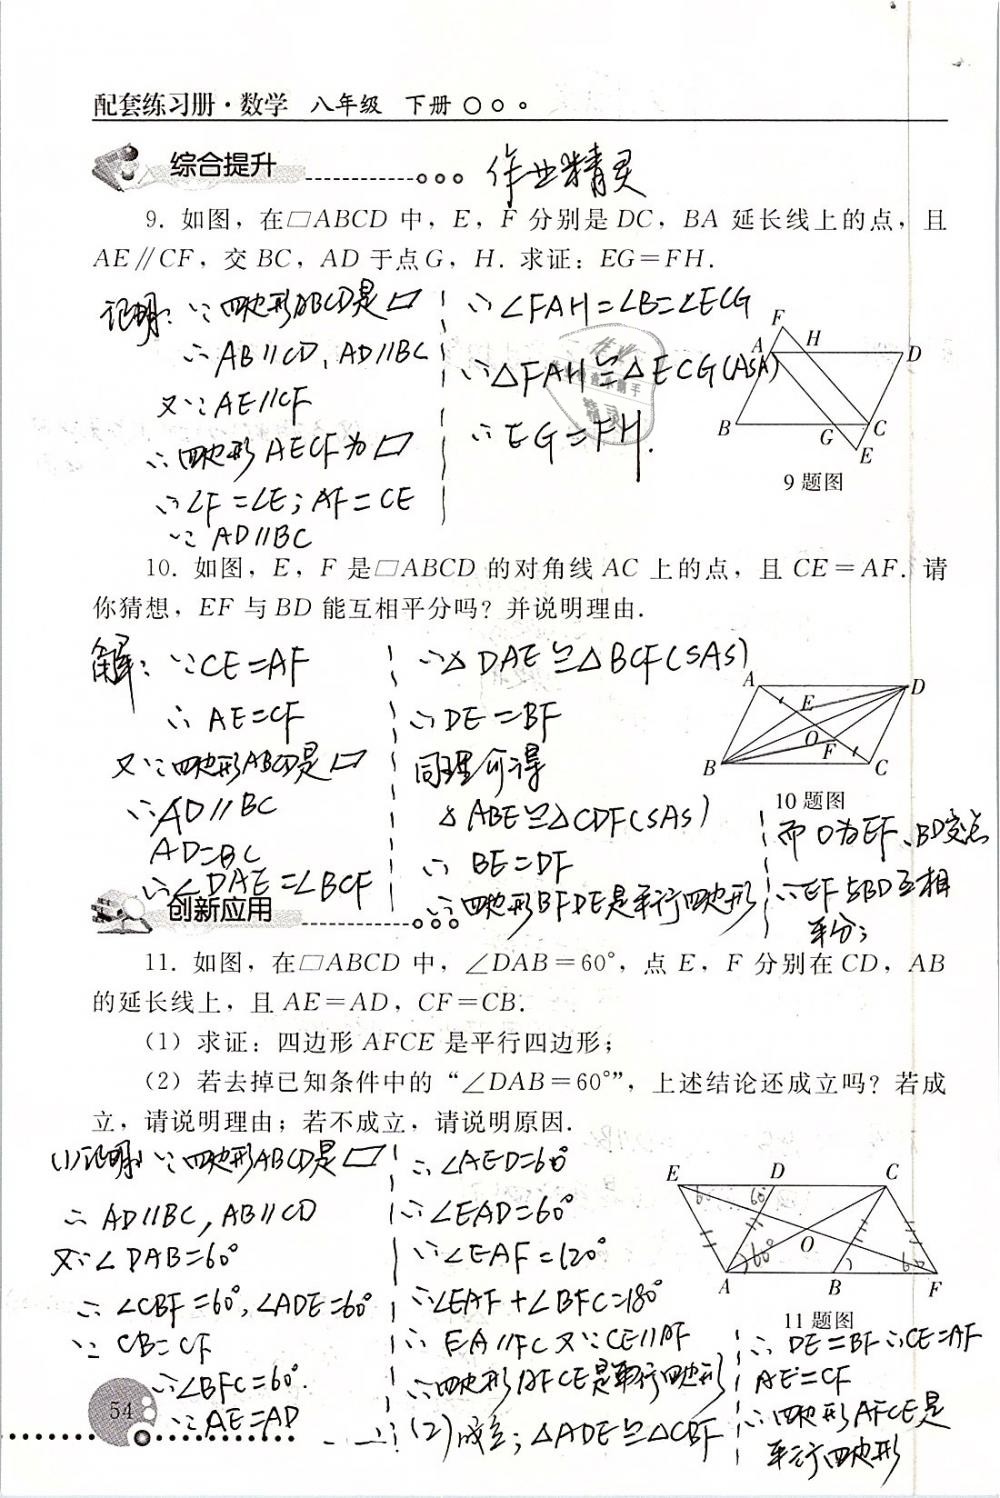 配套练习册·数学 八年级 下册
综合提升
作业精灵
9. 如图，在□ABCD 中，E，F 分别是 DC，BA 延长线上的点，且
AE∥CF，交 BC，AD 于点G，H. 求证：EG=FH.
证明：∵四边形ABCD是▱
∴AB∥CD，AD∥BC
又∵AE∥CF
∴四边形AECF为▱
∴∠F=∠E；AF=CE
∵AD∥BC
∴∠FAH=∠B=∠ECG
∴△FAH≌△ECG(ASA)
∴EG=FH.
F
A H D
B G C
E
9 题图
10. 如图，E，F 是□ABCD 的对角线 AC 上的点，且 CE=AF. 请
你猜想，EF 与 BD 能互相平分吗？并说明理由.
解：∵CE=AF
∴AE=CF
又∵四边形ABCD是▱
∴AD∥BC
AD=BC
∴∠DAE=∠BCF
∴△DAE≌△BCF(SAS)
∴DE=BF
同理可得
△ABE≌△CDF(SAS)
∴BE=DF
∴四边形BFDE是平行四边形
A D
E
O F
B C
10 题图
而O为EF、BD交点
∴EF与BD互相
平分；
创新应用
11. 如图，在□ABCD 中，∠DAB=60°，点 E，F 分别在 CD，AB
的延长线上，且 AE=AD，CF=CB.
（1）求证：四边形 AFCE 是平行四边形；
（2）若去掉已知条件中的“∠DAB=60°”，上述结论还成立吗？若成
立，请说明理由；若不成立，请说明原因.
(1)证明：∵四边形ABCD是▱
∴AD∥BC，AB∥CD
又∵∠DAB=60°
∴∠CBF=60°，∠ADE=60°
∵CB=CF
∴∠BFC=60°.
∵AE=AD
∴∠AED=60°
∴∠EAD=60°
∴∠EAF=120°
∴∠EAF+∠BFC=180°
∴EA∥FC又∵CE∥AF
∴四边形AFCE是平行四边形
(2)成立；△ADE≌△CBF
E D C
60°
O
60°
A B F
11 题图
∴DE=BF∴CE=AF
AE=CF
∴四边形AFCE是
平行四边形
54